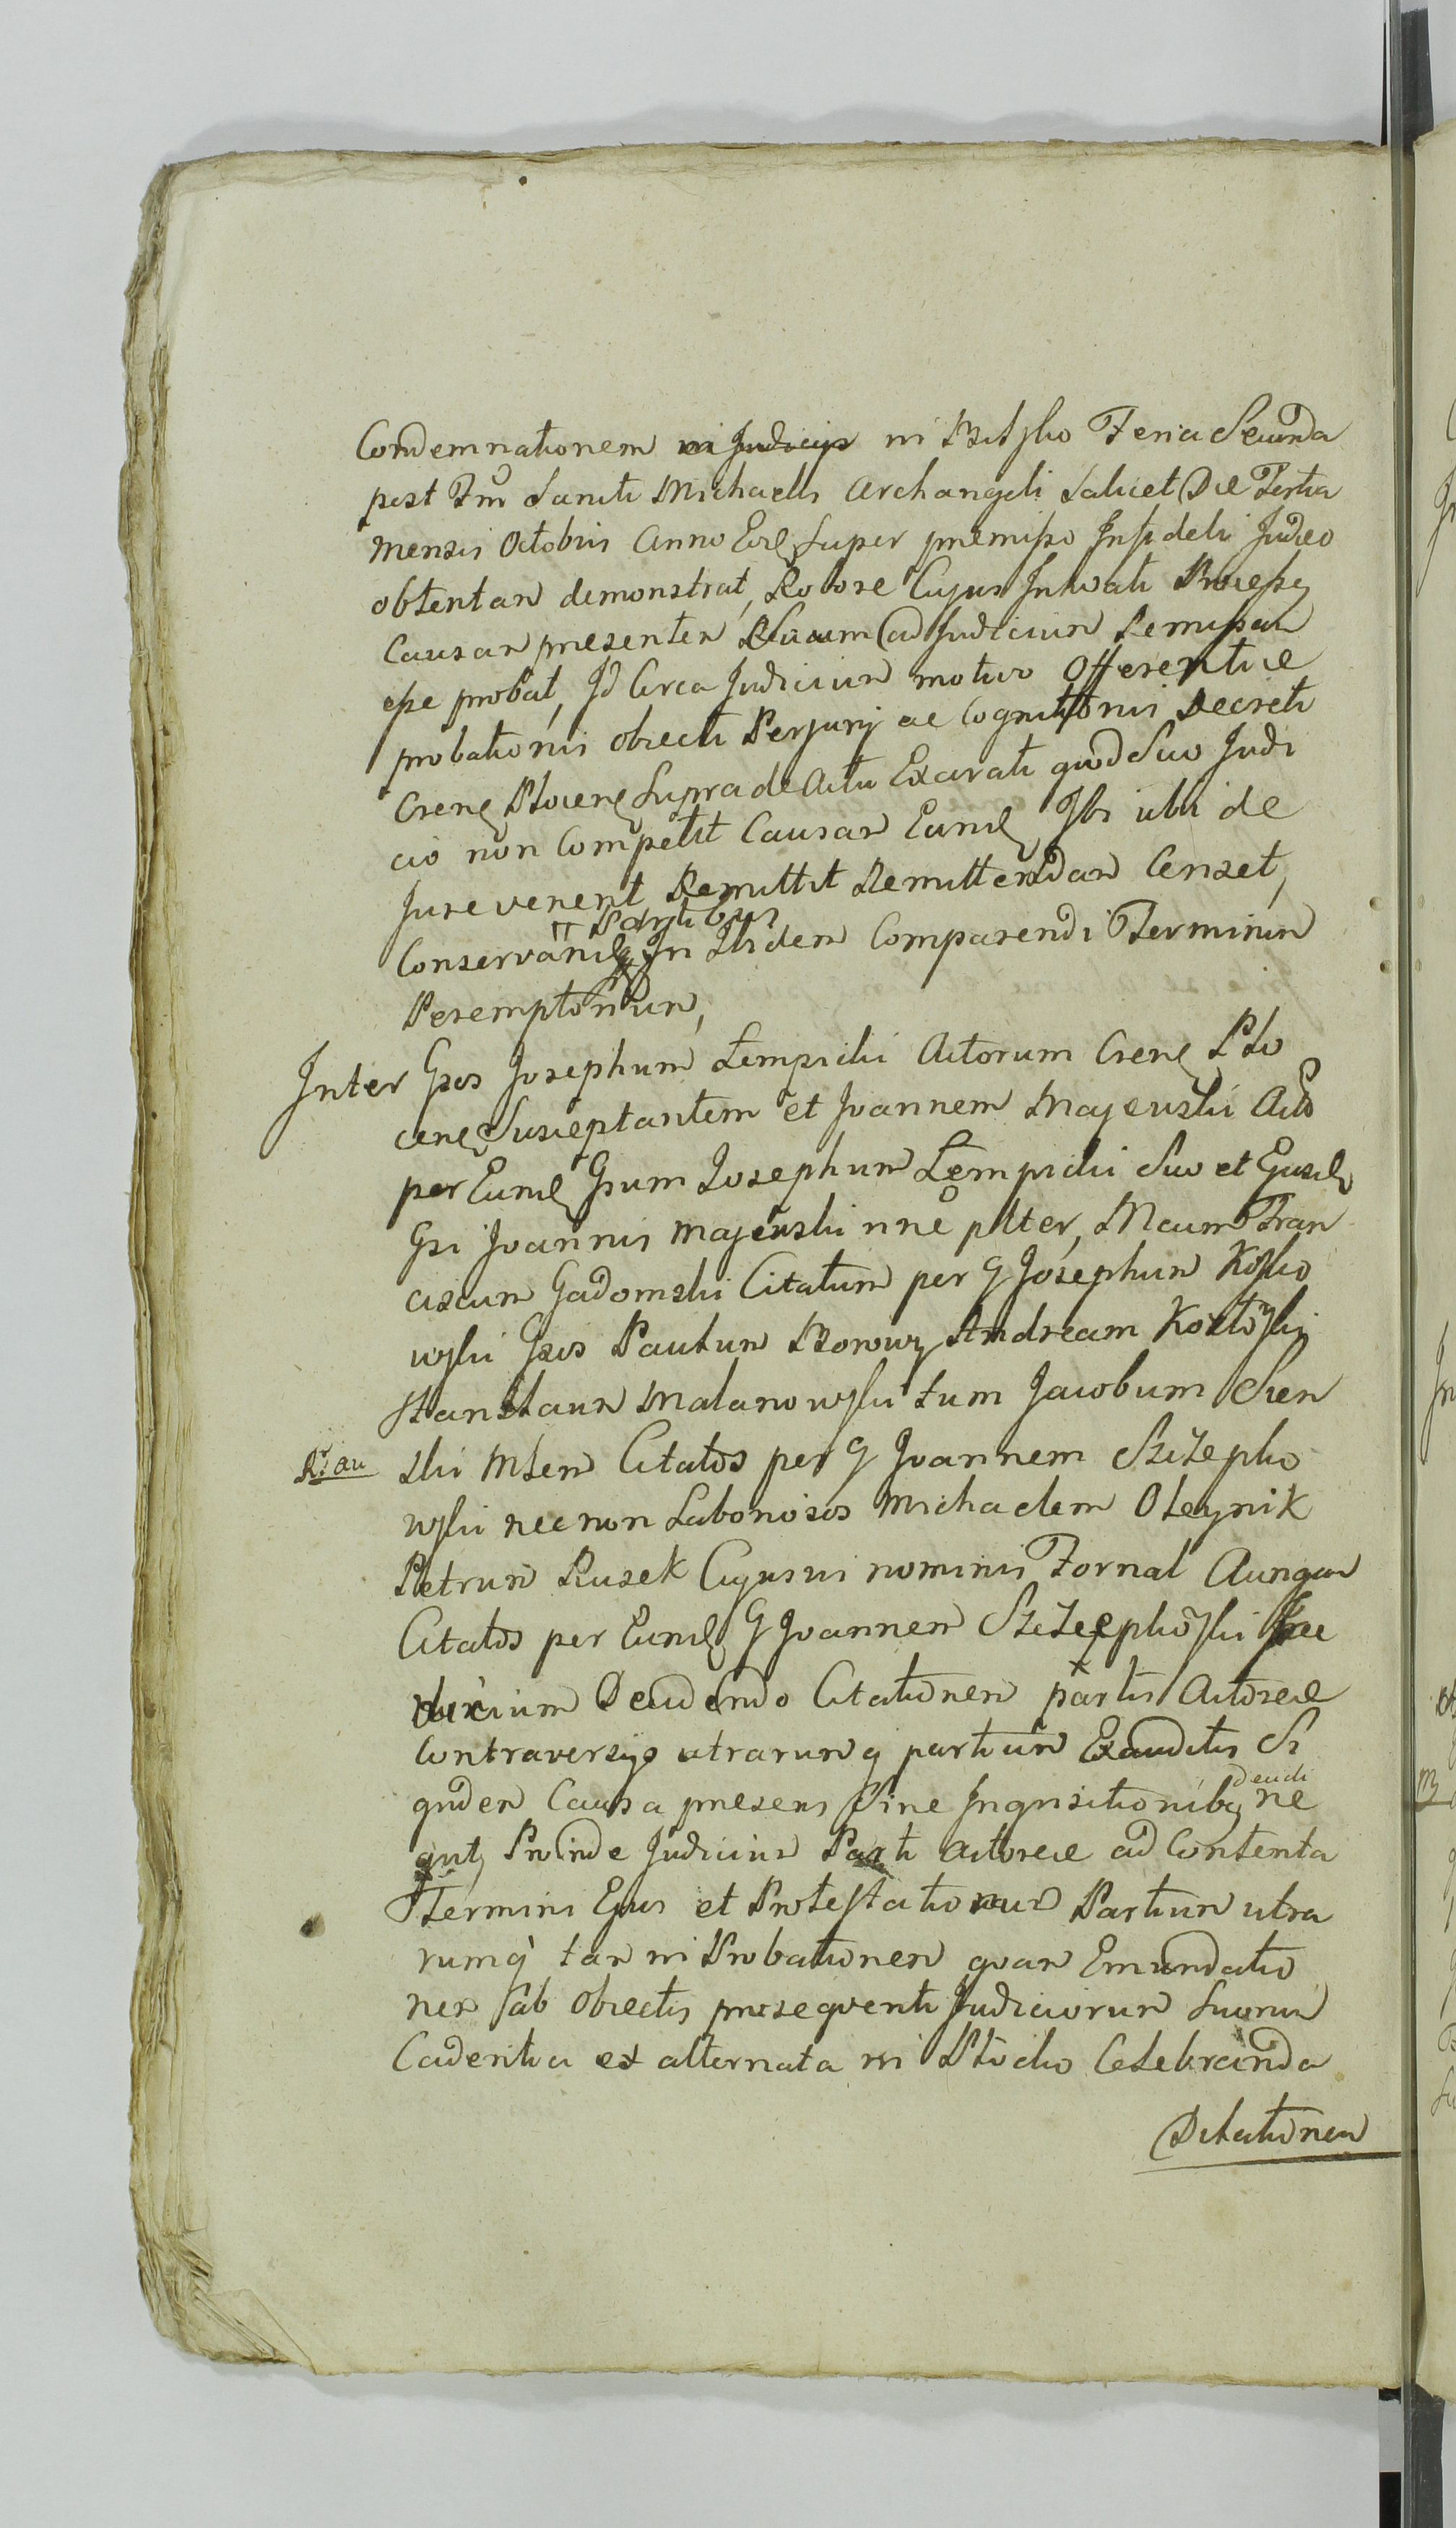 Condemnationem in Judicijs in Bielsko Feria Secunda
post Fm̄ Sancti Michaelis Archangeli Salicet Die Tertia
Mensis Octobris Anno Eod. Super premisso Infideli Judeo
obtentam demonstrat, Robore Cujus Intrati Processus
Causam presentem ad Judicium Remissam
esse probat, Id Circa Judicium motivo Offerentiæ
probationis obiecti Perjurij ac Cognitionis Decreti
Crens. Plocens. Supra de Actu Exarati quod Suo Judi
cio non Competit Causam Eand. Ibi ubi de
Jure venerit Remittit Remittendam Censet,
Partibus
Conservand. In Ibidem Comparendi Terminum
Peremptorium,
Inter Gsos Josephum Lempicki Actorum Crens. Plo
cens. Susceptantem et Joannem Majewski Acto
per Eund. Gsum Josephum Lempicki Suo et Ejusd.
Gsi Joannis Majewski nne pltter, Mcum Fran
ciscum Gadomski Citatum per G Josephum Kosko
wski Gsos Paulum Borowy Andream Kozłowski
Stanislaum Malanowski tum Jacobum Sien
Rt. au
ski Mlsem Citatos per G Joannem Szczepko
wski necnon Laboriosos Michaelem Oleynik
Petrum Rusek Cujusvis nominis Fornal Aurigam
Citatos per Eund. G Joannem Szczepkowski
dicium Deudendo Citationem partis Actoreæ
Controversijs utrarumq partium Exauditis Si
deudi
quidem Causa presens Sine Inquisitionibus ne
quit, Proinde Judicium Parti Actoreæ ad Contenta
Termini Ejus et Protestationum Partium utra
rumq tam in Probationem quam Emundatio
nem ab Obiectis pro sequenti Judiciorum Suorum
Cadentia ex alternata in Plocko Celebranda
Dilationem